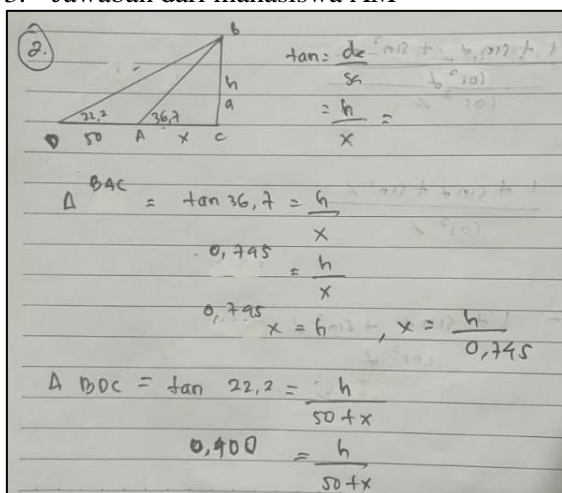 3. Jawaban dari mahasiswa AM
2.
b
tan = de
sa
= h =
x
h
a
22,2 36,7
D 50 A x C
Δ BAC = tan 36,7 = h
x
0,745 = h
x
0,745 x = h , x = h
0,745
Δ BDC = tan 22,2 = h
50 + x
0,400 = h
50 + x